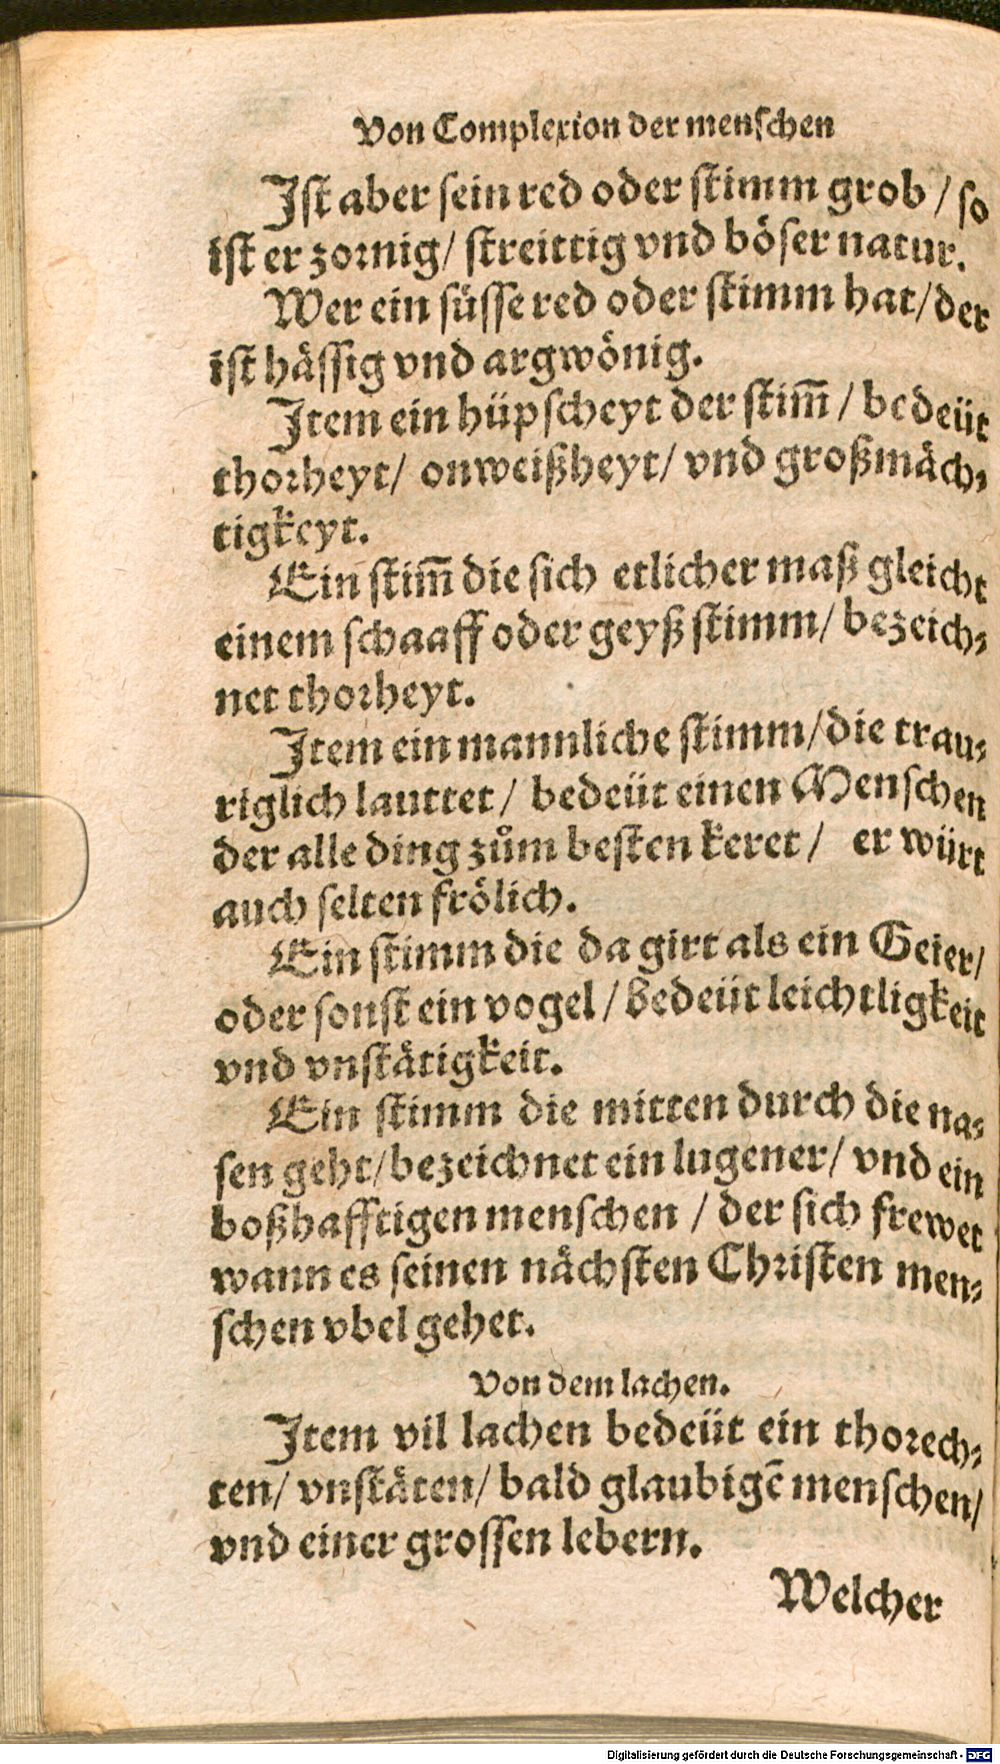 Von Complexion der menschen
Ist aber sein red oder stimm grob / so
ist er zornig / streittig vnd böser natur.
Wer ein süsse red oder stimm hat / der
ist hässig vnd argwönig.
Item ein hüpscheyt der stim̃ / bedeüt
thorheyt / onweißheyt / vnd großmäch⸗
tigkeyt.
Ein stim̃ die sich etlicher maß gleicht
einem schaaff oder geyß stimm / bezeich⸗
net thorheyt.
Item ein mannliche stimm / die trau⸗
riglich lauttet / bedeüt einen Menschen
der alle ding zům besten keret / er würt
auch selten frölich.
Ein stimm die da girt als ein Geier /
oder sonst ein vogel / bedeüt leichtligkeit
vnd vnstätigkeit.
Ein stimm die mitten durch die na⸗
sen geht / bezeichnet ein lugener / vnd ein
boßhafftigen menschen / der sich frewet
wann es seinen nächsten Christen men⸗
schen vbel gehet.
Von dem lachen.
Item vil lachen bedeüt ein thorech⸗
ten / vnstäten / bald glaubigẽ menschen /
vnd einer grossen lebern.
Welcher
Digitalisierung gefördert durch die Deutsche Forschungsgemeinschaft - DFG